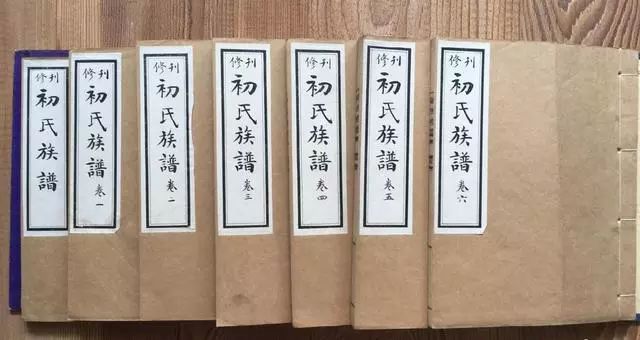 修刊
初氏族譜
修刊
初氏族譜
卷一
修刊
初氏族譜
卷二
修刊
初氏族譜
卷三
修刊
初氏族譜
卷四
修刊
初氏族譜
卷五
修刊
初氏族譜
卷六